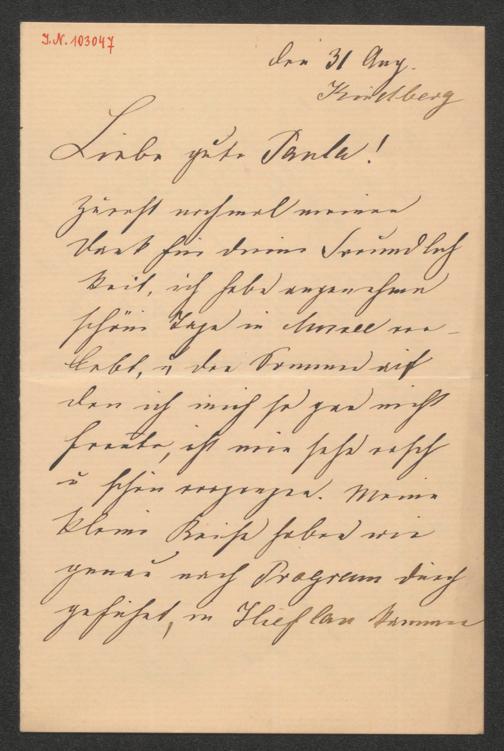 J.N. 103047
den 31 Aug.
Kindberg
Liebe gute Paula!
Zuerst nochmal meinen
Dank für deine Freundlich
keit, ich habe angenehme
schöne Tage in Aussee ver-
lebt, u der Sommer auf
den ich mich so gar nicht
freute, ist mir sehr rasch
u schön vergangen. Meine
kleine Reise haben wir
genau nach Program durch
geführt, in Hieflau kamen